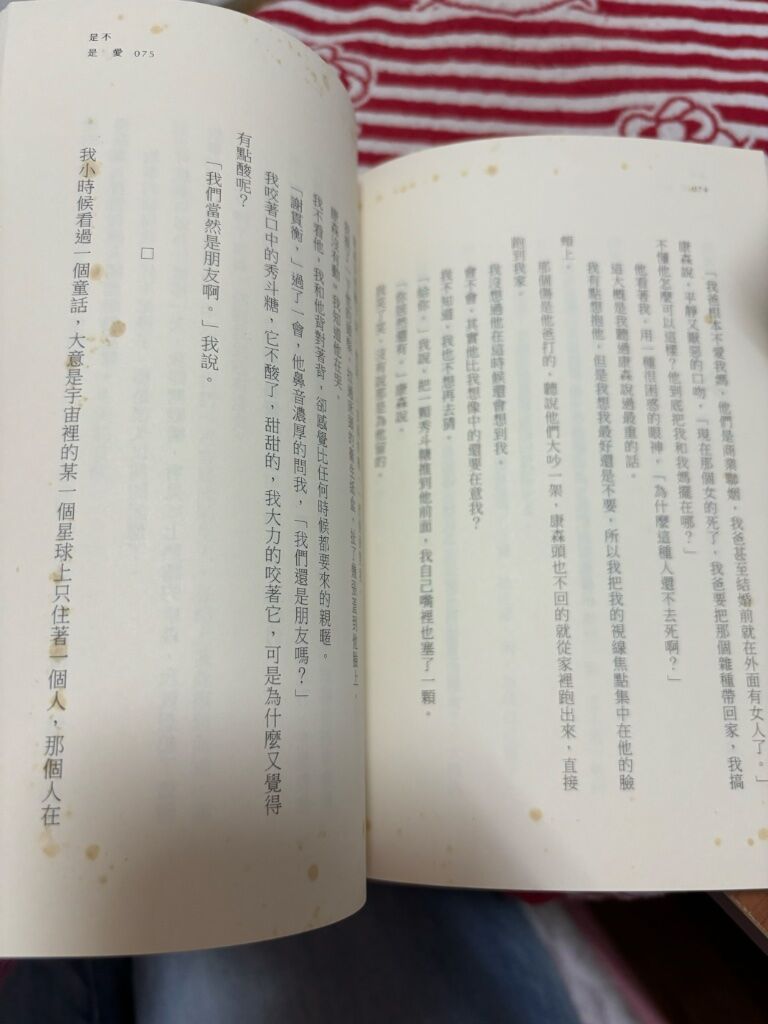 074
「我爸根本不愛我媽，他們是商業聯姻，我爸甚至結婚前就在外面有女人了。」
康森說，平靜又厭惡的口吻，「現在那個女的死了，我爸要把那個雜種帶回家，我搞
不懂他怎麼可以這樣？他到底把我和我媽擺在哪？」
他看著我，用一種很困惑的眼神，「為什麼這種人還不去死啊？」
這大概是我聽過康森說過最重的話。
我有點想抱他，但是我想我最好還是不要，所以我把我的視線焦點集中在他的臉
頰上。
那個傷是他爸打的，聽說他們大吵一架，康森頭也不回的就從家裡跑出來，直接
跑到我家。
我沒想過他在這時候還會想到我。
會不會，其實他比我想像中的還要在意我？
我不知道，我也不想再去猜。
「給你。」我說，把一顆秀斗糖推到他前面，我自己嘴裡也塞了一顆。
「你居然還有。」康森說。
我笑了笑，沒有說那是為他留的。
是不
是 愛 075
康森沒有動，我知道他在哭。
我不看他，我和他背對著背，卻感覺比任何時候都要來的親暱。
「謝貫衡，」過了一會，他鼻音濃厚的問我，「我們還是朋友嗎？」
我咬著口中的秀斗糖，它不酸了，甜甜的，我大力的咬著它，可是為什麼又覺得
有點酸呢？
「我們當然是朋友啊。」我說。
□
我小時候看過一個童話，大意是宇宙裡的某一個星球上只住著一個人，那個人在